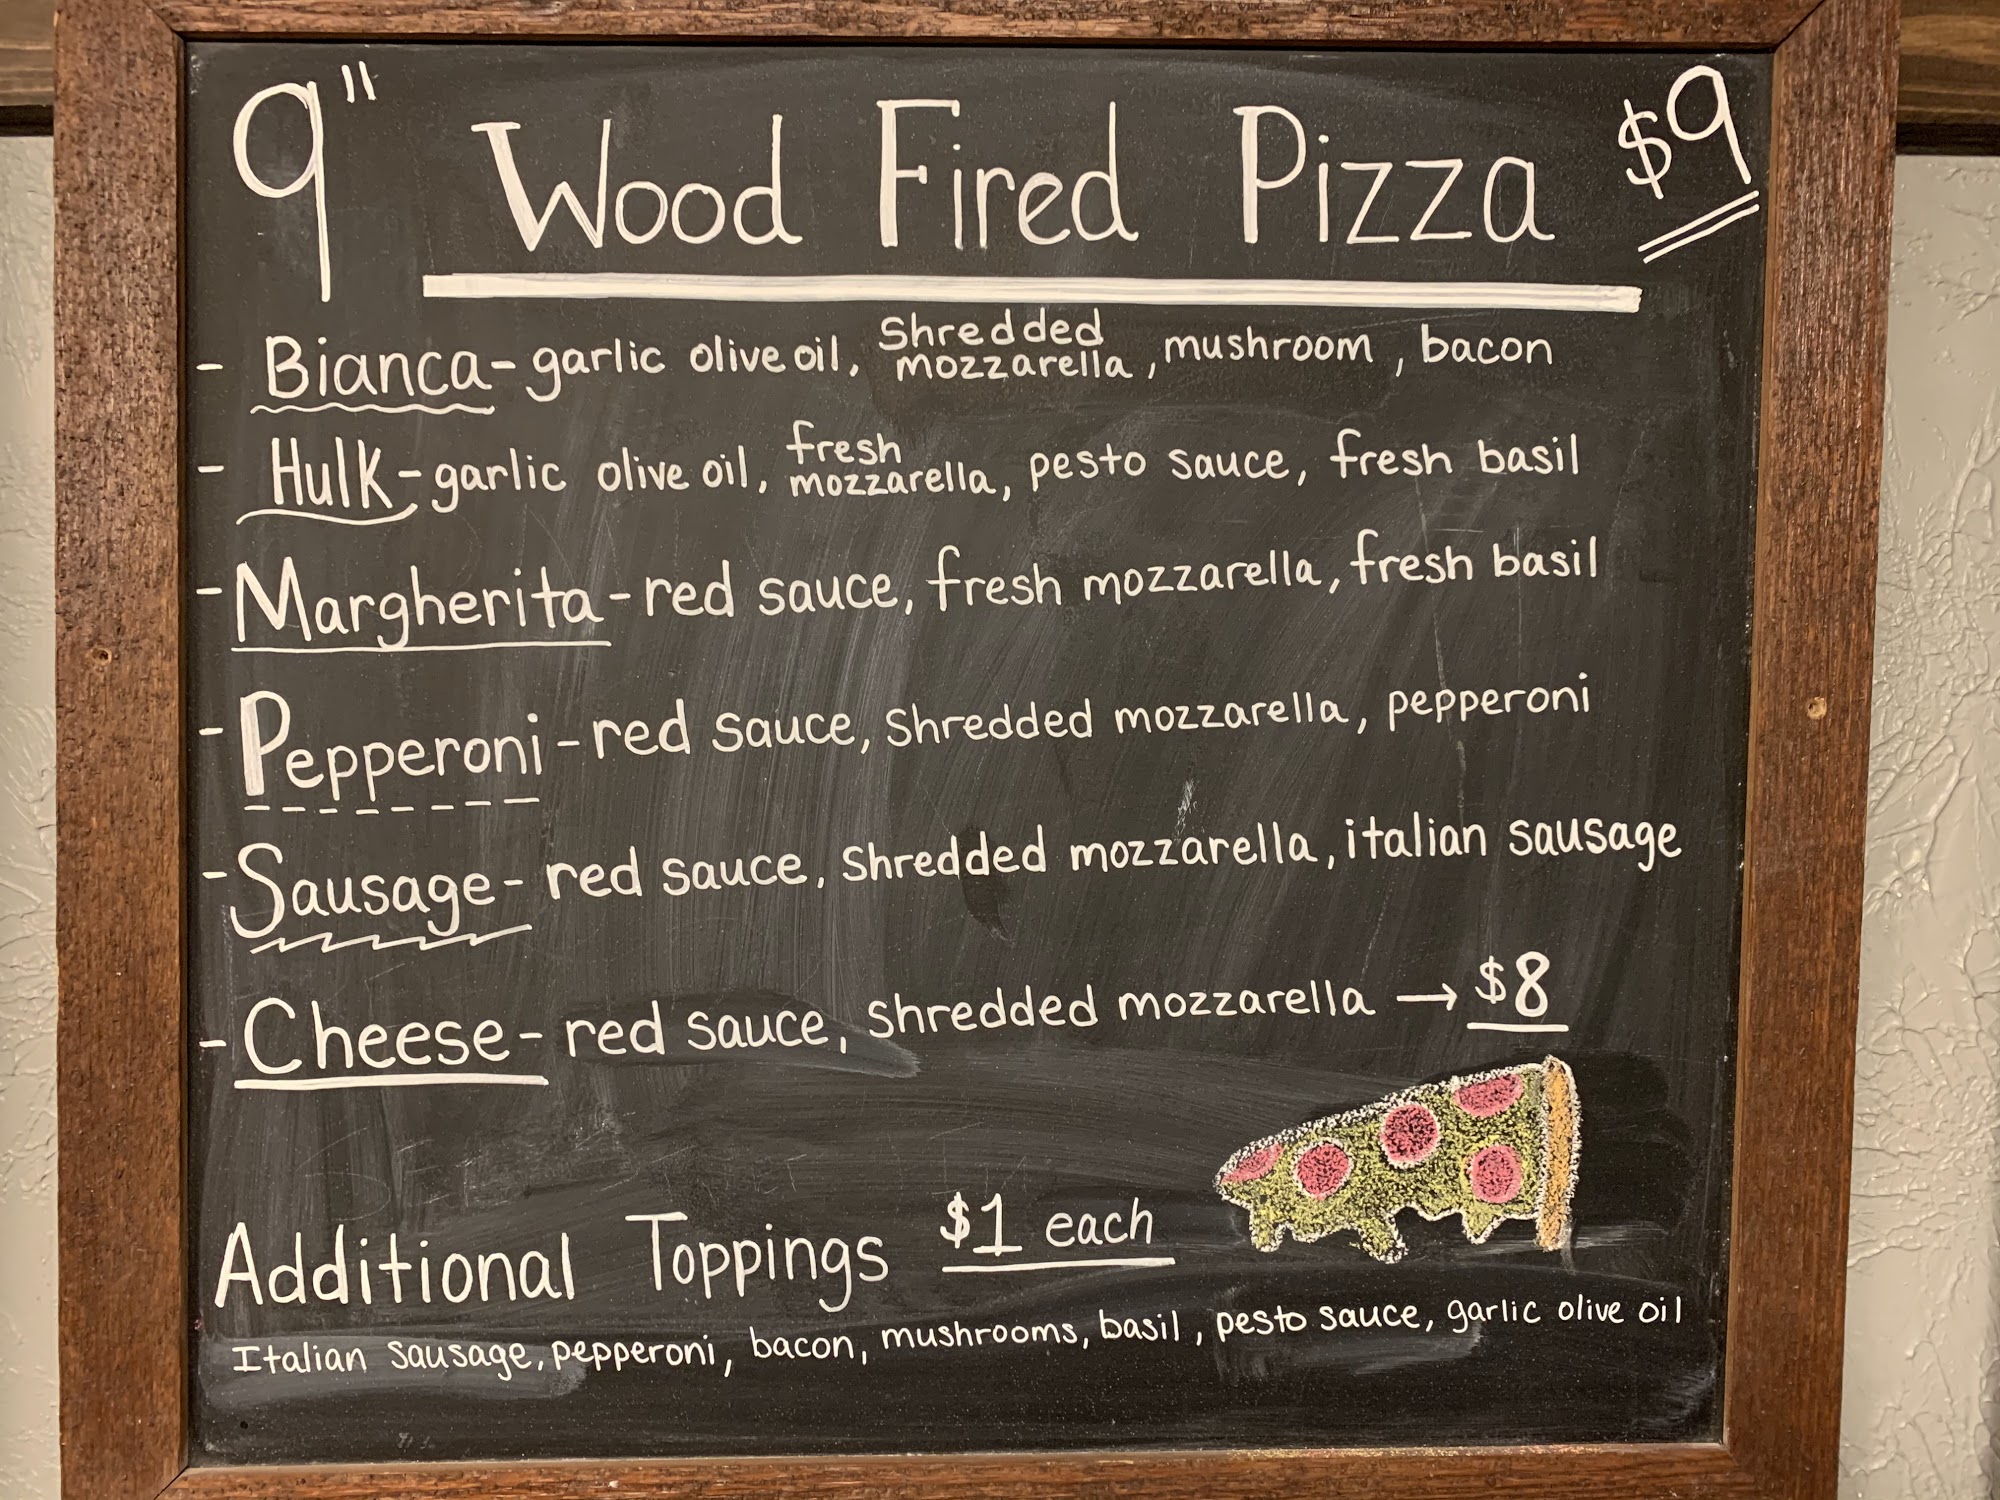 9" Wood Fired Pizza $9
- Bianca - garlic olive oil, Shredded mozzarella, mushroom, bacon
- Hulk - garlic olive oil, fresh mozzarella, pesto sauce, fresh basil
- Margherita - red sauce, fresh mozzarella, fresh basil
- Pepperoni - red sauce, Shredded mozzarella, pepperoni
- Sausage - red sauce, Shredded mozzarella, italian sausage
- Cheese - red sauce, Shredded mozzarella → $8
Additional Toppings $1 each
Italian Sausage, pepperoni, bacon, mushrooms, basil, pesto sauce, garlic olive oil